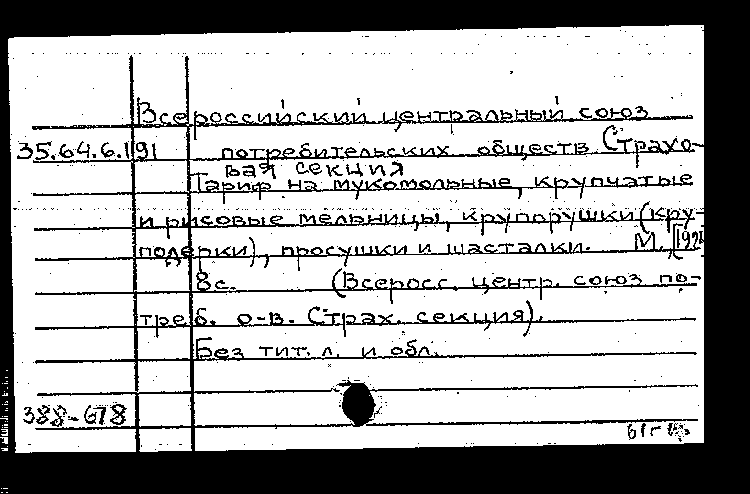 Всероссийский центральный союз
35.64.6.191 потребительских обществ. Страхо-
вая секция
Тариф на мукомольные, крупчатые
и рисовые мельницы, крупорушки (кру-
подерки), просушки и шасталки. М.,
8с. (Всеросс. центр. союз по-
треб. о-в. Страх. секция).
Без тит. л. и обл.
388-678